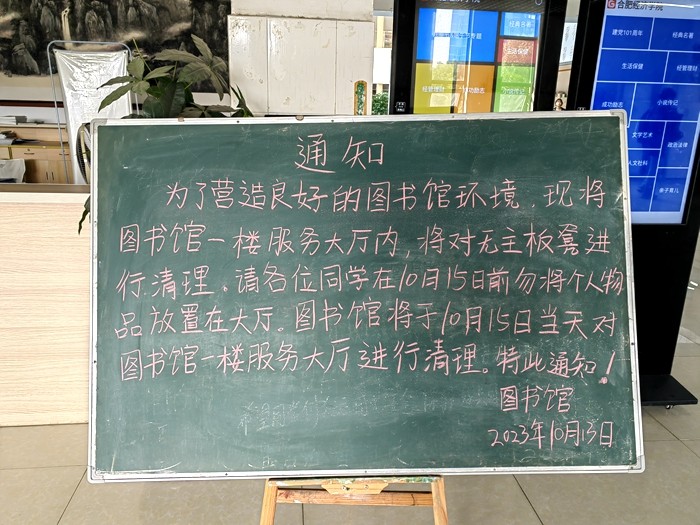 通知
为了营造良好的图书馆环境,现将
图书馆一楼服务大厅内,将对无主板凳进
行清理。请各位同学在10月15日前勿将个人物
品放置在大厅。图书馆将于10月15日当天对
图书馆一楼服务大厅进行清理。特此通知!
图书馆
2023年10月13日
合肥经济学院
建党101周年
经典名著
生活保健
经管理财
成功励志
小说传记
文学艺术
政治法律
人文社科
亲子育儿
经典名著
生活保健
经管理财
成功励志
小说传记